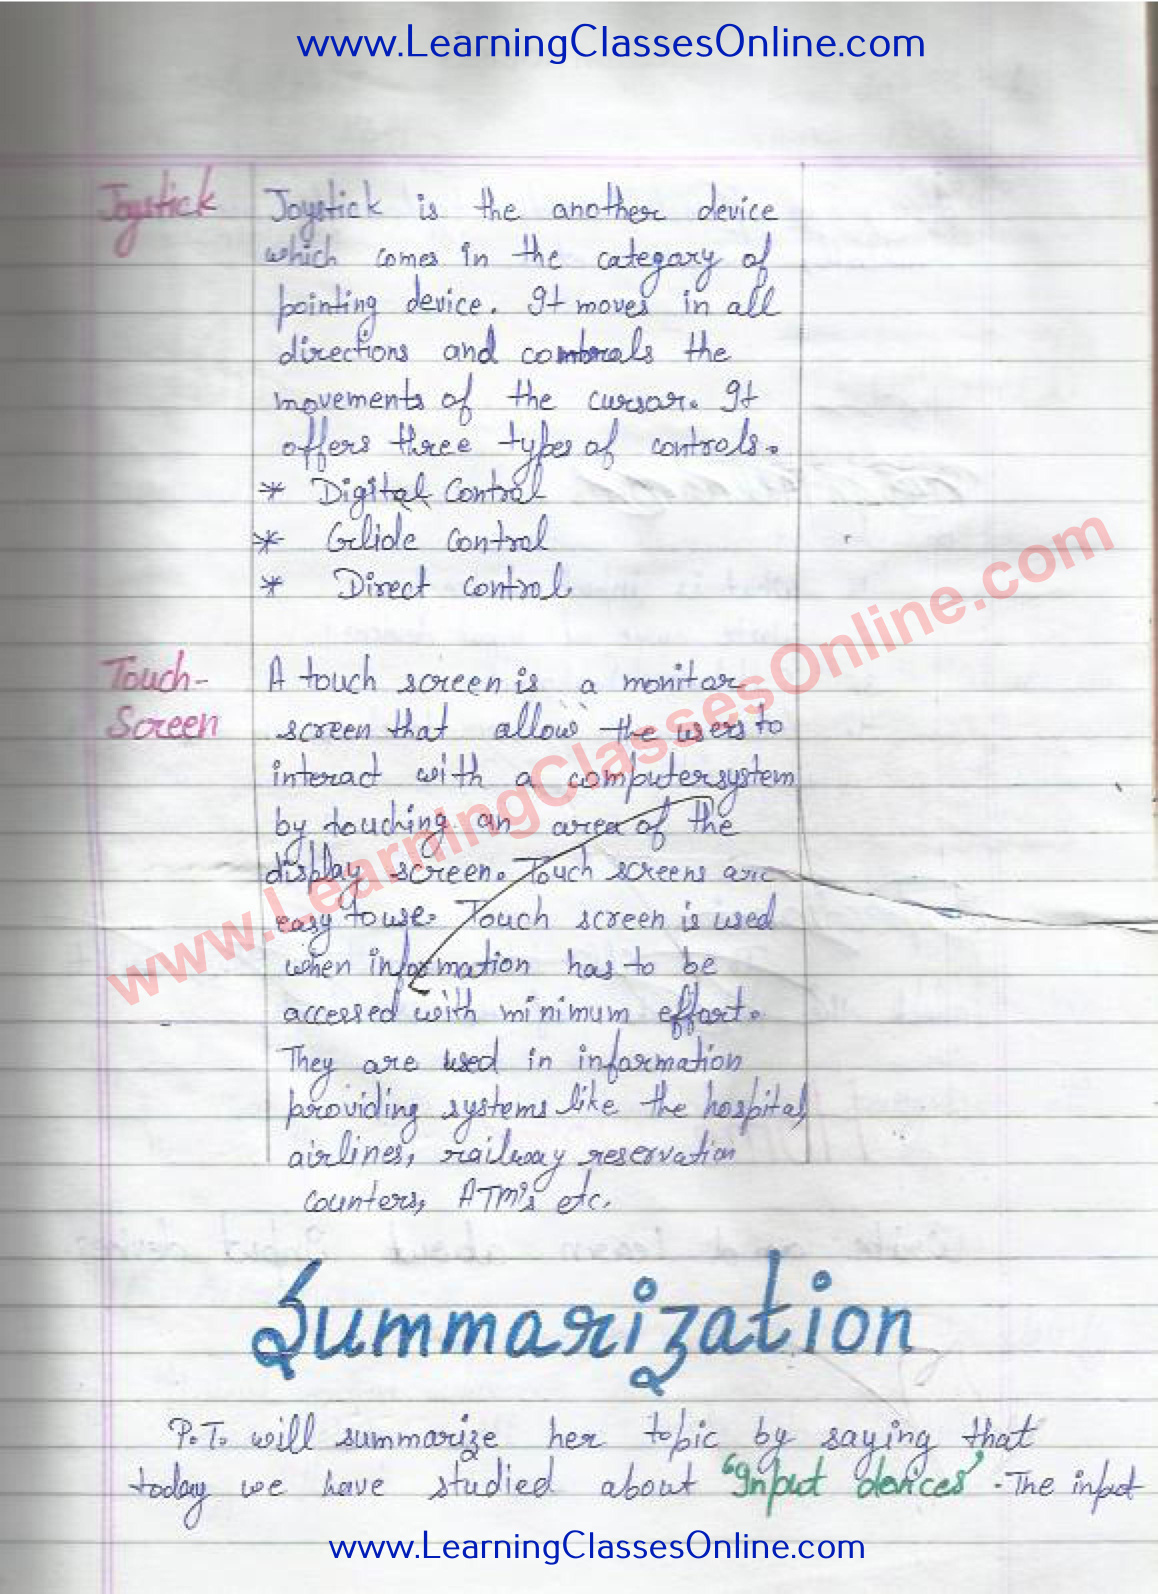 www.LearningClassesOnline.com
Joystick
Joystick is the another device
which comes in the category of
pointing device. It moves in all
directions and controls the
movements of the cursor. It
offers three types of controls.
* Digital Control
* Glide Control
* Direct Control
Touch-
Screen
A touch screen is a monitor
screen that allow the users to
interact with a computer system
by touching an area of the
display screen. Touch screens are
easy to use. Touch screen is used
when information has to be
accessed with minimum effort.
They are used in information
providing systems like the hospital,
airlines, railway reservation
counters, ATM's etc.
www.LearningClassesOnline.com
Summarization
P.T. will summarize her topic by saying that
today we have studied about "Input devices". The input
www.LearningClassesOnline.com